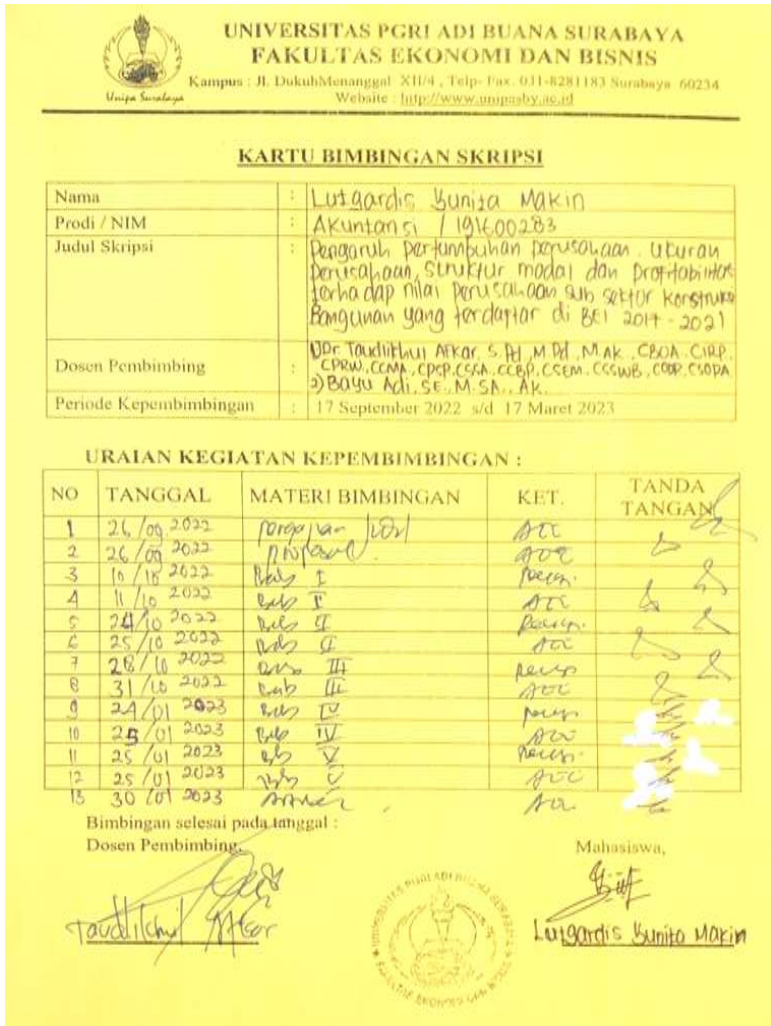 UNIVERSITAS PGRI ADI BUANA SURABAYA
FAKULTAS EKONOMI DAN BISNIS
Kampus : Jl. DukuhMenanggal XII/4 , Telp- Fax. 031-8281183 Surabaya 60234
Website : http://www.unipasby.ac.id
Unipa Surabaya
KARTU BIMBINGAN SKRIPSI
Nama : Lutgardis Yunita Makin
Prodi / NIM : Akuntansi / 191600283
Judul Skripsi : Pengaruh pertumbuhan perusahaan, ukuran
perusahaan, struktur modal dan Profitabilitas
terhadap nilai perusahaan sub sektor konstruksi
Bangunan yang terdaftar di BEI 2017 - 2021
Dosen Pembimbing : 1) Dr. Taudlikhul Afkar, S.Pd, M.Pd, M.Ak, CBOA, CIRP,
CPRW, CCMA, CPSP, CSSA, CCBP, CSEM, CSSWB, CODP, CSOPA
2) Bayu Adi, SE, M.SA., Ak.
Periode Kepembimbingan : 17 September 2022 s/d 17 Maret 2023
URAIAN KEGIATAN KEPEMBIMBINGAN :
NO TANGGAL MATERI BIMBINGAN KET. TANDA TANGAN
1 26/09 2022 pengajuan judul ACC
2 26/09 2022 proposal ACC
3 10/10 2022 Bab I Revisi
4 11/10 2022 Bab I ACC
5 24/10 2022 Bab II Revisi
6 25/10 2022 Bab II ACC
7 28/10 2022 Bab III Revisi
8 31/10 2022 Bab III ACC
9 24/01 2023 Bab IV Revisi
10 25/01 2023 Bab IV ACC
11 25/01 2023 Bab V Revisi
12 25/01 2023 Bab V ACC
13 30/01 2023 ACC
Bimbingan selesai pada tanggal :
Dosen Pembimbing, Mahasiswa,
Taudlikhul Afkar Lutgardis Yunita Makin
UNIVERSITAS PGRI ADI BUANA SURABAYA
FAKULTAS EKONOMI DAN BISNIS